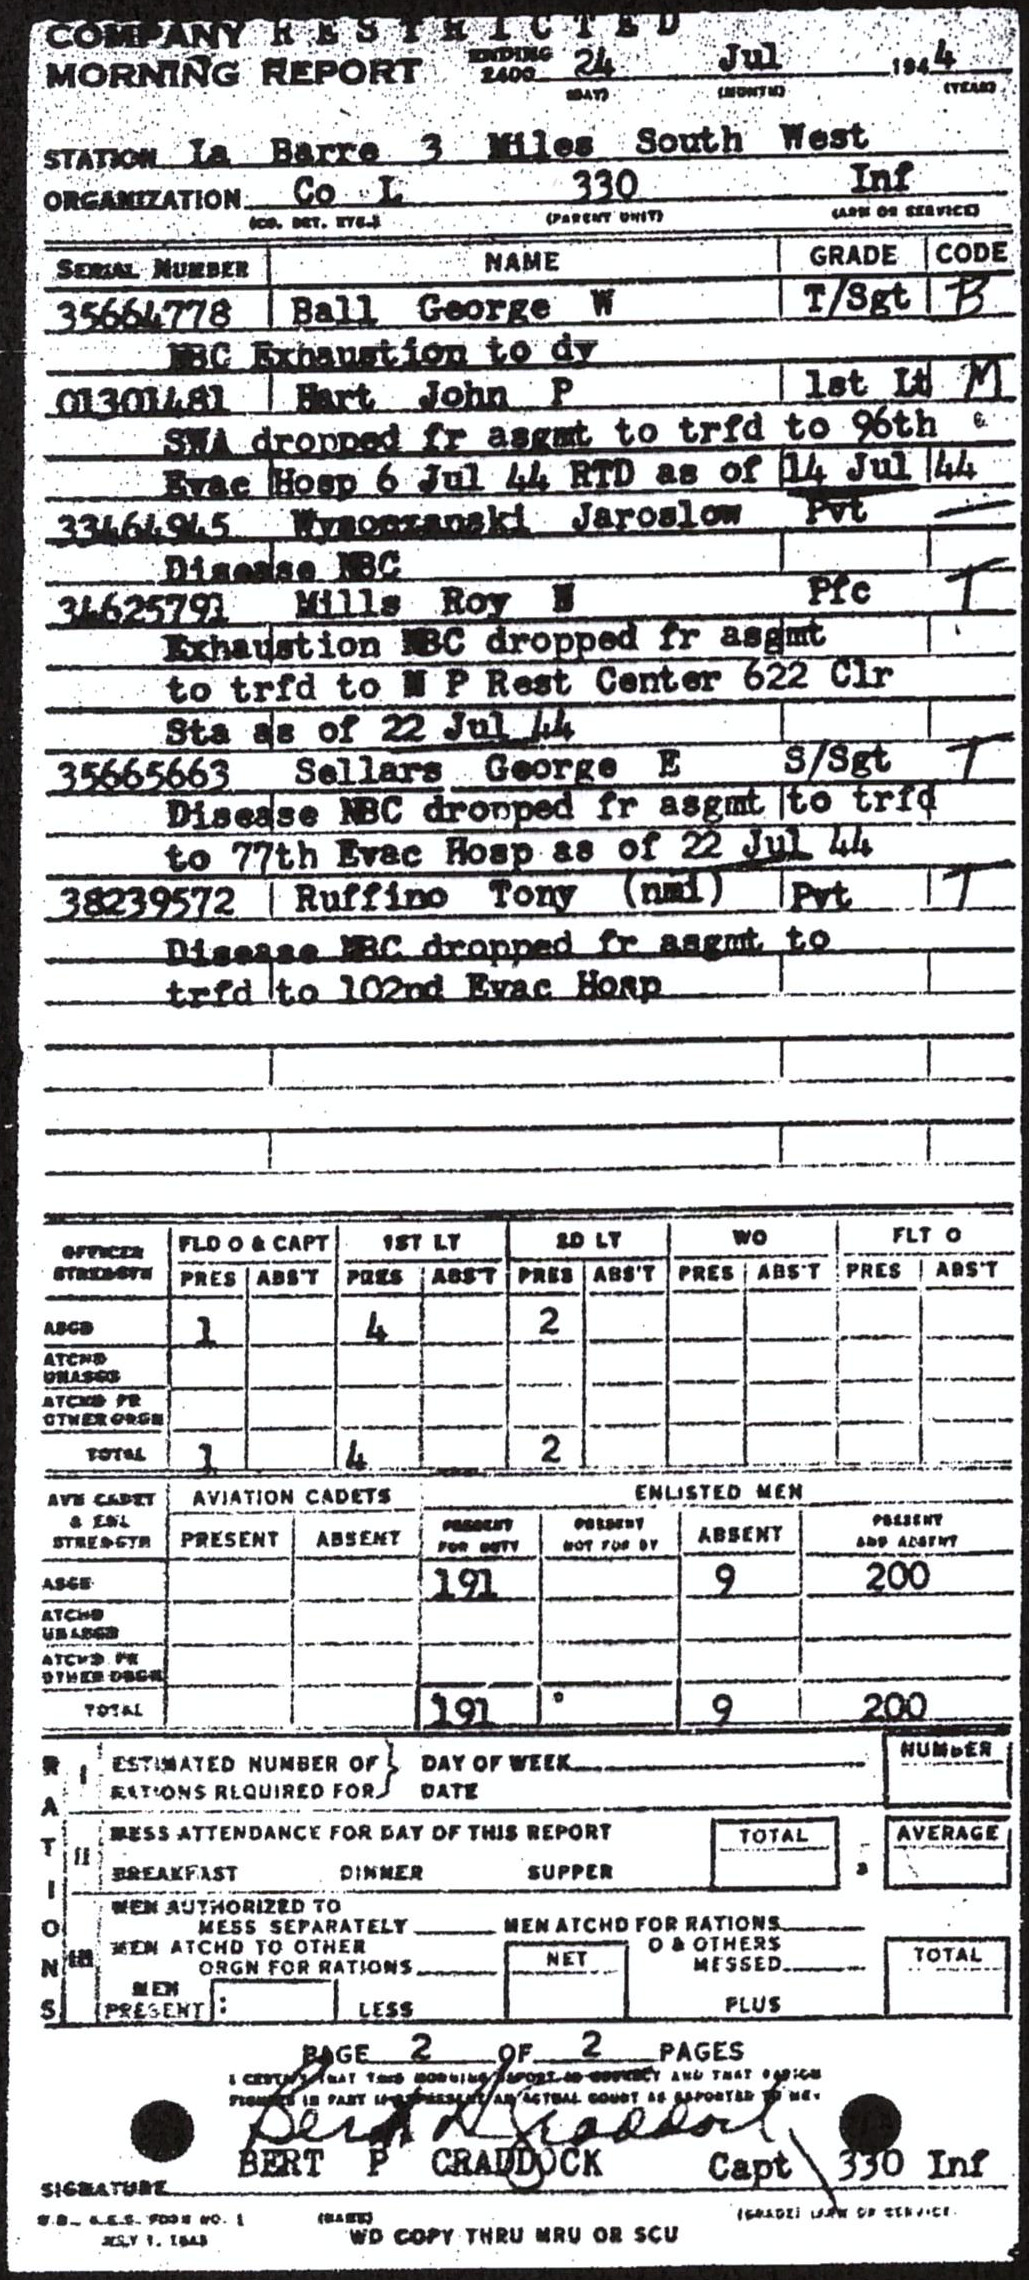 COMPANY RESTRICTED
MORNING REPORT ENDING 2400 24 Jul 1944
(DAY) (MONTH) (YEAR)
STATION La Barre 3 Miles South West
ORGANIZATION Co L 330 Inf
(CO. DET. ETC.) (PARENT UNIT) (ARM OR SERVICE)
SERIAL NUMBER NAME GRADE CODE
35664778 Ball George W T/Sgt B
NBC Exhaustion to dy
01301481 Hart John P 1st Lt M
SWA dropped fr asgmt to trfd to 96th
Evac Hosp 6 Jul 44 RTD as of 14 Jul 44
33464945 Wysoczanski Jaroslow Pvt —
Disease NBC
34625791 Mills Roy Pfc T
Exhaustion NBC dropped fr asgmt
to trfd to N P Rest Center 622 Clr
Sta as of 22 Jul 44
35665663 Sellars George E S/Sgt T
Disease NBC dropped fr asgmt to trfd
to 77th Evac Hosp as of 22 Jul 44
38239572 Ruffino Tony (nmi) Pvt T
Disease NBC dropped fr asgmt to
trfd to 102nd Evac Hosp
OFFICER STRENGTH FLD O & CAPT 1ST LT 2D LT WO FLT O
PRES ABS'T PRES ABS'T PRES ABS'T PRES ABS'T PRES ABS'T
ASGD 1 4 2
ATCHD UNASGD
ATCHD FR OTHER ORGN
TOTAL 1 4 2
AVN CADET & ENL STRENGTH AVIATION CADETS ENLISTED MEN
PRESENT ABSENT PRESENT FOR DUTY PRESENT NOT FOR DY ABSENT PRESENT AND ABSENT
ASGD 191 9 200
ATCHD UNASGD
ATCHD FR OTHER ORGN
TOTAL 191 9 200
RATIONS
I ESTIMATED NUMBER OF } DAY OF WEEK NUMBER
RATIONS REQUIRED FOR DATE
II MESS ATTENDANCE FOR DAY OF THIS REPORT TOTAL AVERAGE
BREAKFAST DINNER SUPPER
III MEN AUTHORIZED TO
MESS SEPARATELY MEN ATCHD FOR RATIONS
MEN ATCHD TO OTHER NET O & OTHERS TOTAL
ORGN FOR RATIONS MESSED
MEN PRESENT : LESS PLUS
PAGE 2 OF 2 PAGES
I CERTIFY THAT THIS MORNING REPORT IS CORRECT AND THAT RATION
FIGURES IN PART III REPRESENT AN ACTUAL COUNT AS REPORTED TO ME.
Bert P Craddock
BERT P CRADDOCK Capt 330 Inf
SIGNATURE
(NAME) (GRADE) (ARM OR SERVICE)
W.D., A.G.O. FORM NO. 1
JULY 1, 1943 WD COPY THRU MRU OR SCU